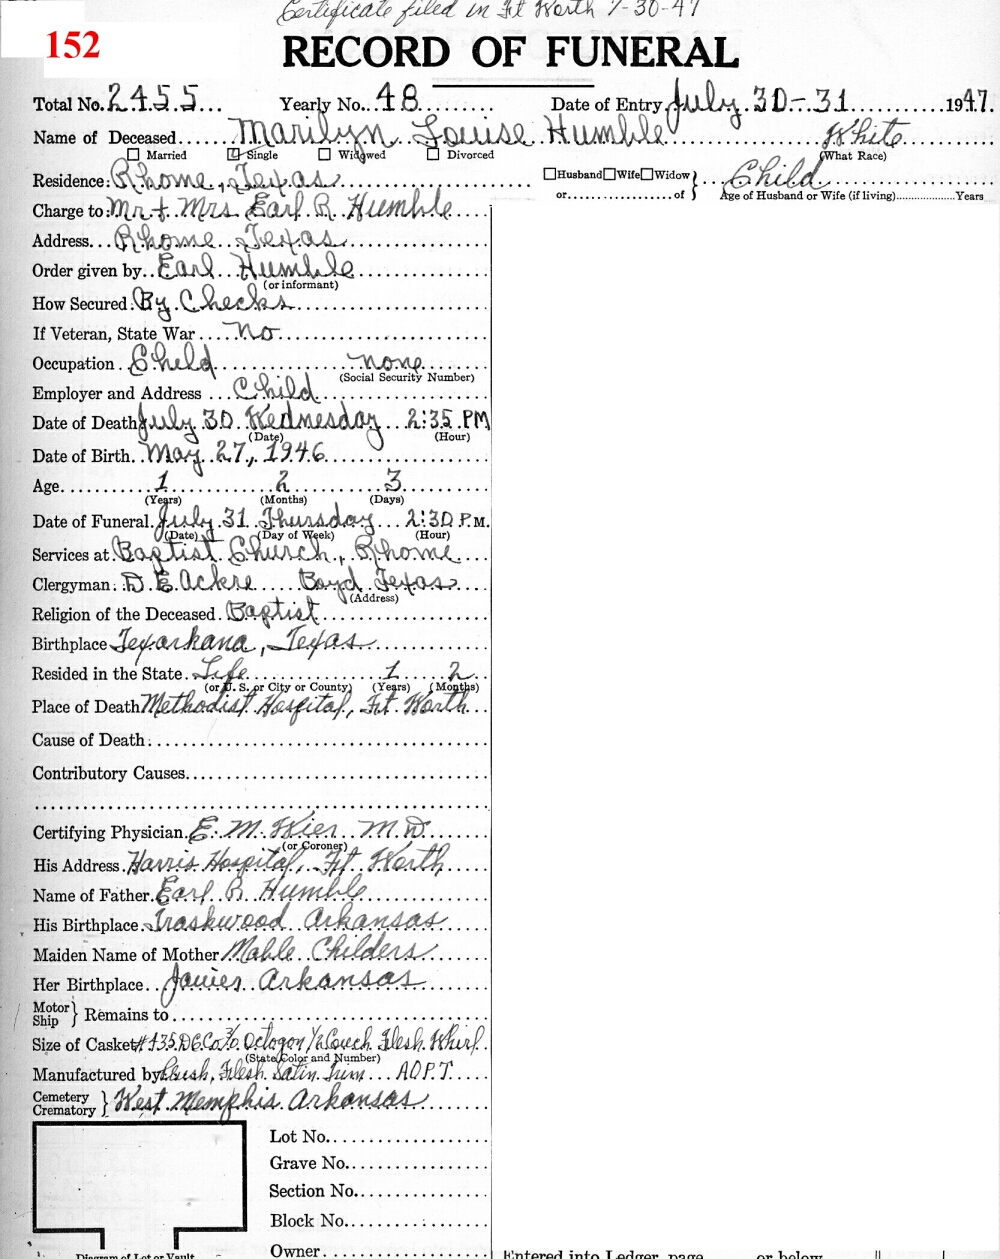 Certificate filed in Ft Worth 7-30-47
152
RECORD OF FUNERAL
Total No. 2455 Yearly No. 48 Date of Entry July 30-31 1947.
Name of Deceased Marilyn Louise Humble White
Married Single Widowed Divorced (What Race)
Residence: Rhome, Texas Husband Wife Widow } Child
or of } Age of Husband or Wife (if living) Years
Charge to: Mr + Mrs Earl R. Humble
Address Rhome Texas
Order given by Earl Humble
(or informant)
How Secured: By Checks
If Veteran, State War no
Occupation Child none
(Social Security Number)
Employer and Address Child
Date of Death July 30 Wednesday 2:35 PM
(Date) (Hour)
Date of Birth May 27, 1946
Age 1 2 3
(Years) (Months) (Days)
Date of Funeral July 31 Thursday 2:30 P.M.
(Date) (Day of Week) (Hour)
Services at Baptist Church, Rhome
Clergyman: D.E. Ackre Boyd Texas
(Address)
Religion of the Deceased Baptist
Birthplace Texarkana, Texas
Resided in the State Life 1 2
(or U. S. or City or County) (Years) (Months)
Place of Death Methodist Hospital, Ft. Worth
Cause of Death:
Contributory Causes
Certifying Physician E. M. Wier M.D.
(or Coroner)
His Address Harris Hospital, Ft Worth
Name of Father Earl R Humble
His Birthplace Traskwood Arkansas
Maiden Name of Mother Mable Childers
Her Birthplace Arkansas
Motor
Ship } Remains to
Size of Casket #135 D.G.Co. 3/0 Octogon 1/2 Couch Flesh Whirl
(State Color and Number)
Manufactured by Plush, Flesh Satin Trim
Cemetery
Crematory } West Memphis Arkansas
Lot No.
Grave No.
Section No.
Block No.
Owner
Diagram of Lot or Vault Entered into Ledger, page or below